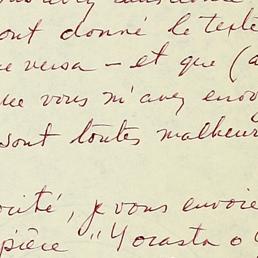 ont donné le texte
versa - et que (a
vous m'avez envo
sont toutes malheur
cité, je vous envoie
pièce "Yocasta o